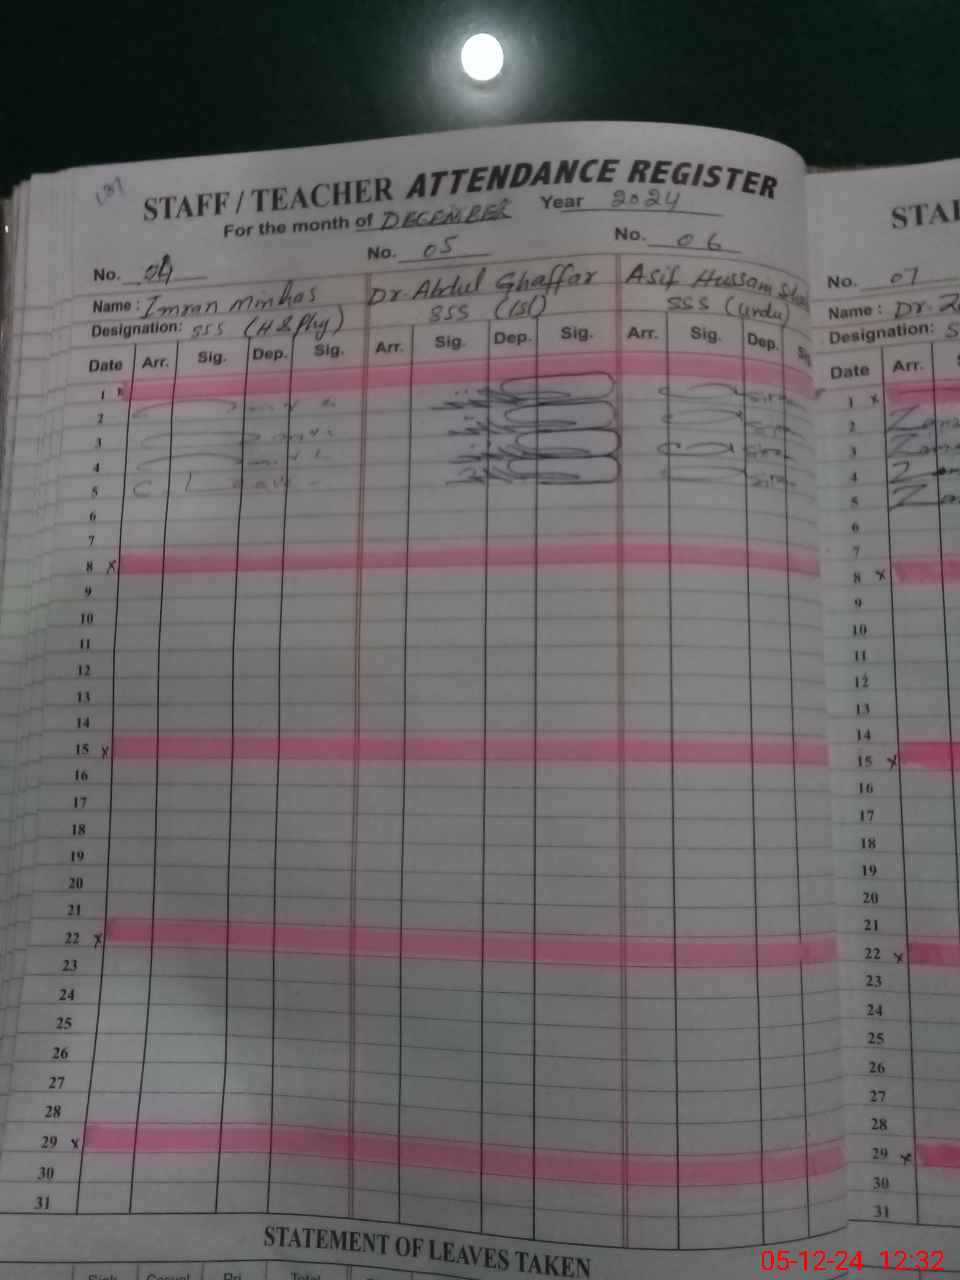 137
STAFF / TEACHER ATTENDANCE REGISTER
For the month of DECEMBER Year 2024
No. 04 No. 05 No. 06
Name : Imran Minhas Dr. Abdul Ghaffar Asif Hussain
Designation: SSS (H & Phy) SSS (Isl) SSS (Urdu)
Date Arr. Sig. Dep. Sig. Arr. Sig. Dep. Sig. Arr. Sig. Dep. Sig
1 x
2
3
4
5
6
7
8 x
9
10
11
12
13
14
15 x
16
17
18
19
20
21
22 x
23
24
25
26
27
28
29 x
30
31
STATEMENT OF LEAVES TAKEN
Sick Casual Pri. Total
STA
No. 07
Name : Dr.
Designation: S
Date Arr.
1 x
2
3
4
5
6
7
8 x
9
10
11
12
13
14
15 x
16
17
18
19
20
21
22 x
23
24
25
26
27
28
29 x
30
31
05-12-24 12:32